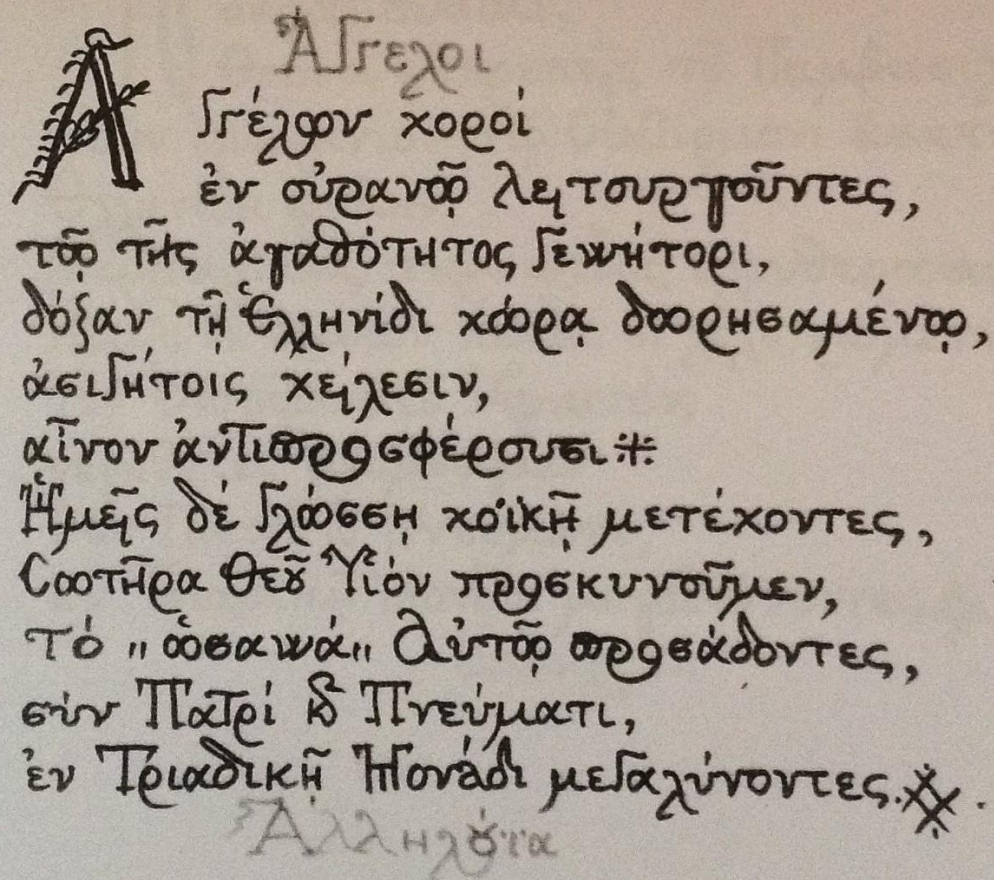 Ἄγγελοι
Ἀγγέλων χοροί
ἐν οὐρανῷ λειτουργοῦντες,
τῷ τῆς ἀγαθότητος Γεννήτορι,
δόξαν τῇ Ἑλληνίδι χώρᾳ δωρησαμένῳ,
ἀσιγήτοις χείλεσιν,
αἶνον ἀντιπροσφέρουσι
Ἡμεῖς δέ γλώσσῃ χοϊκῇ μετέχοντες,
Σωτῆρα Θεοῦ Υἱόν προσκυνοῦμεν,
τό „ὡσαννά„ Αὐτῷ προσάδοντες,
σύν Πατρί & Πνεύματι,
ἐν Τριαδικῇ Μονάδι μεγαλύνοντες.
Ἀλληλούϊα